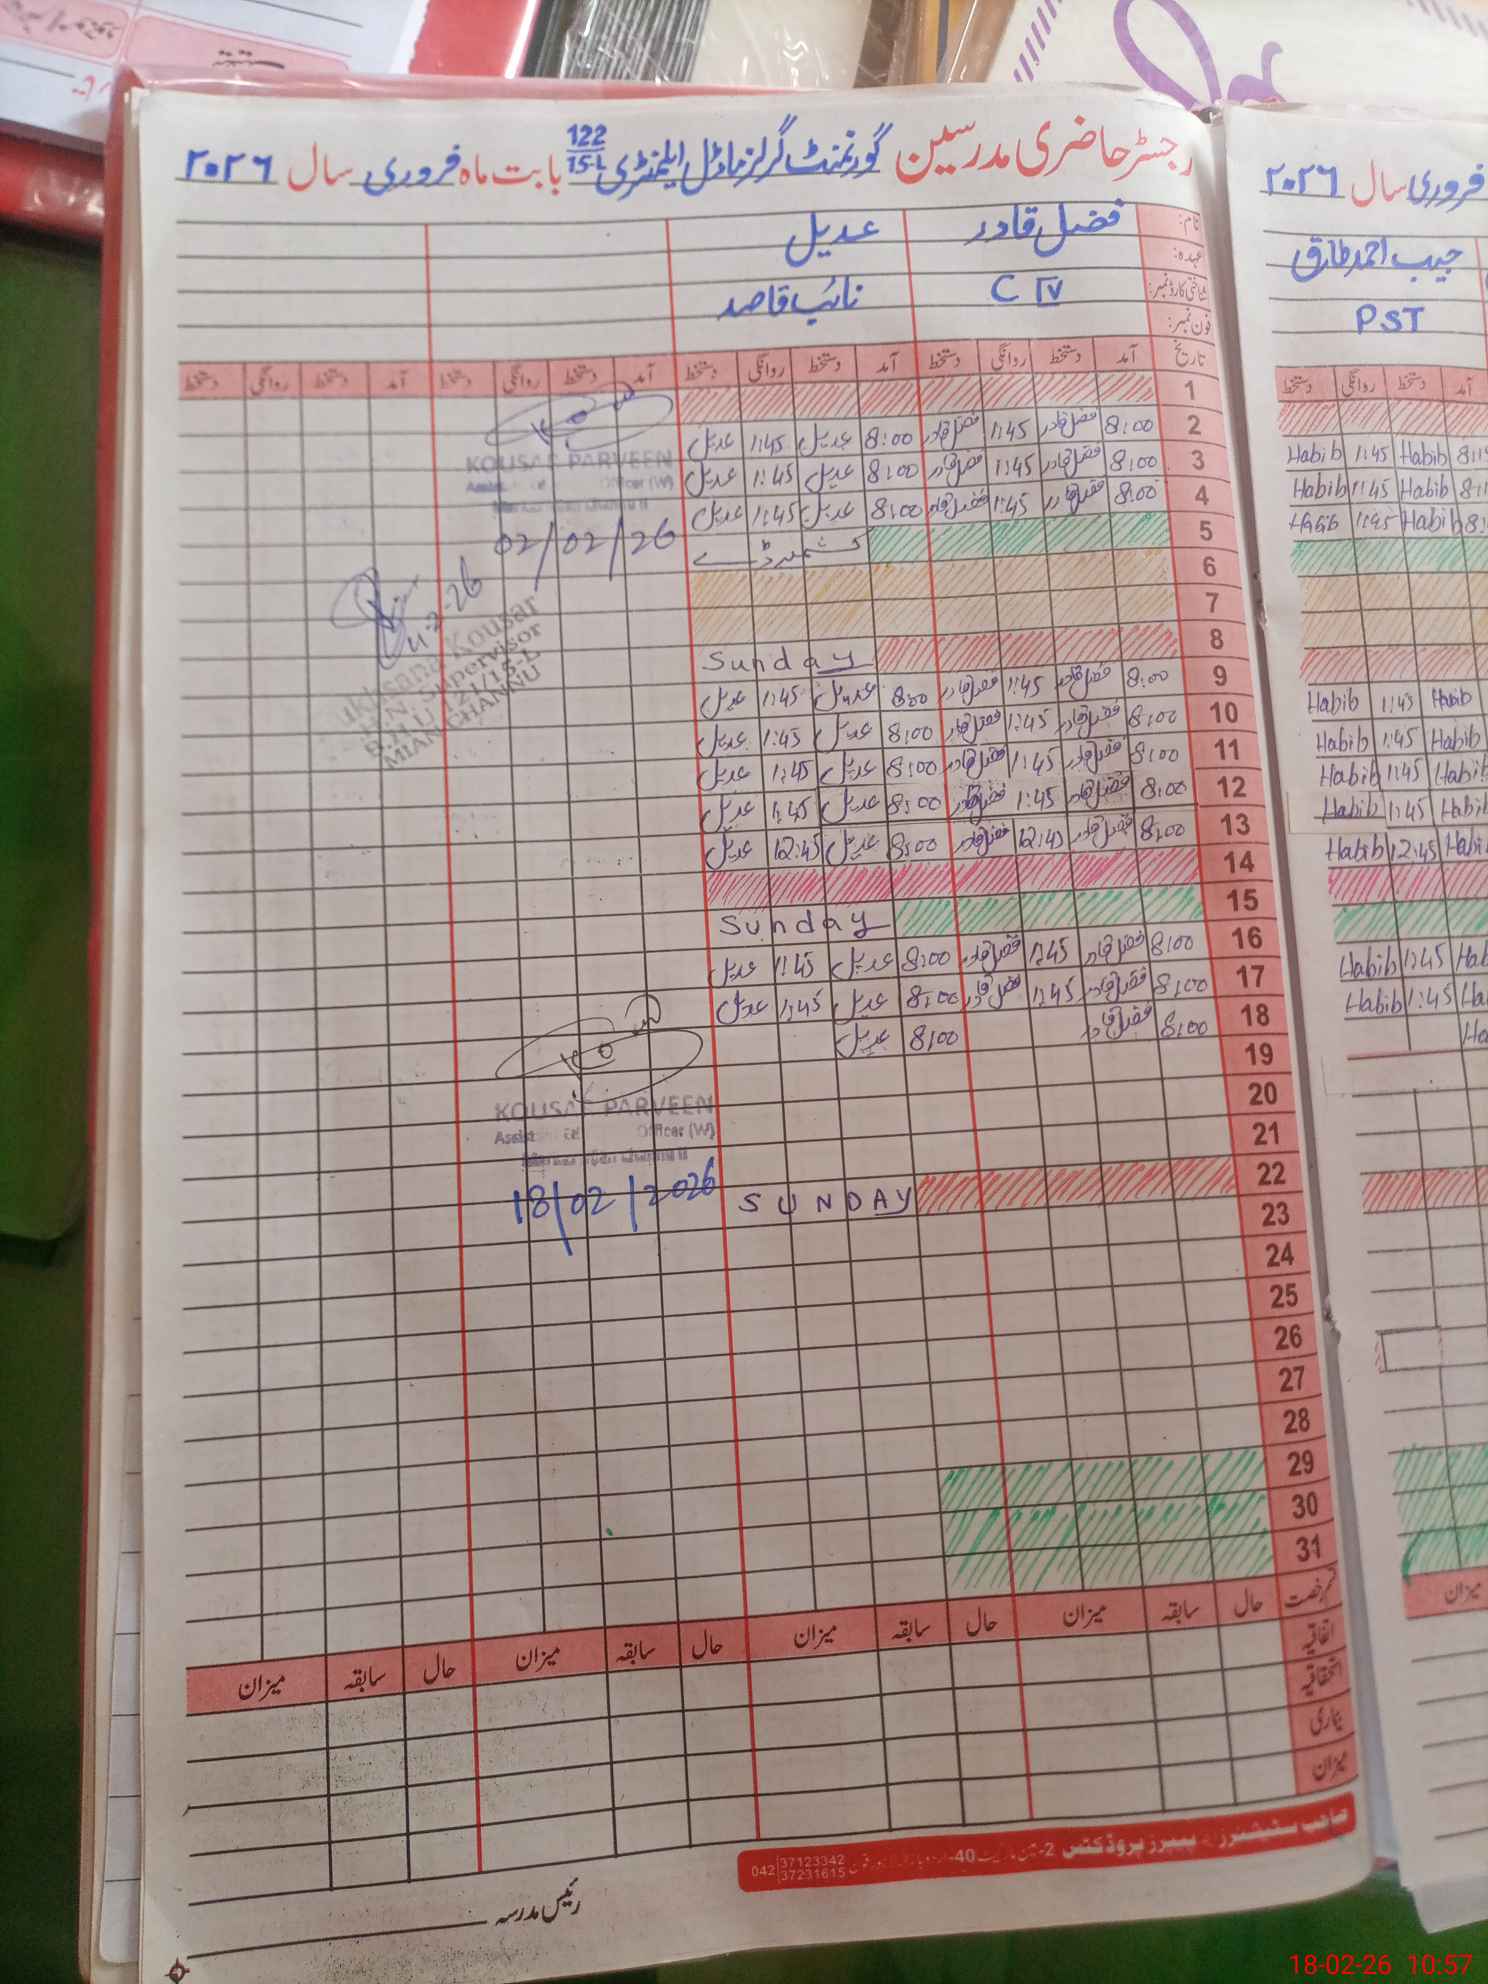 رجسٹر حاضری مدرسین گورنمنٹ گرلز ماڈل ایلیمنٹری 122/15-L بابت ماہ فروری سال ۲۰۲۶
نام: فضل قادر عدیل
عہدہ:
شناختی کارڈ نمبر: C IV نائب قاصد
فون نمبر:
تاریخ آمد دستخط روانگی دستخط آمد دستخط روانگی دستخط آمد دستخط روانگی دستخط آمد دستخط روانگی دستخط
1
2 8:00 فضل قادر 1:45 فضل قادر 8:00 عدیل 1:45 عدیل
3 8:00 فضل قادر 1:45 فضل قادر 8:00 عدیل 1:45 عدیل
4 8:00 فضل قادر 1:45 فضل قادر 8:00 عدیل 1:45 عدیل
5 کشمیر ڈے
6
7
8 Sunday
9 8:00 فضل قادر 1:45 فضل قادر 8:00 عدیل 1:45 عدیل
10 8:00 فضل قادر 1:45 فضل قادر 8:00 عدیل 1:45 عدیل
11 8:00 فضل قادر 1:45 فضل قادر 8:00 عدیل 1:45 عدیل
12 8:00 فضل قادر 1:45 فضل قادر 8:00 عدیل 1:45 عدیل
13 8:00 فضل قادر 12:45 فضل قادر 8:00 عدیل 12:45 عدیل
14
15 Sunday
16 8:00 فضل قادر 1:45 فضل قادر 8:00 عدیل 1:45 عدیل
17 8:00 فضل قادر 1:45 فضل قادر 8:00 عدیل 1:45 عدیل
18 8:00 فضل قادر 8:00 عدیل
19
20
21
22 SUNDAY
23
24
25
26
27
28
29
30
31
قسم رخصت حال سابقہ میزان حال سابقہ میزان حال سابقہ میزان حال سابقہ میزان
اتفاقیہ
استحقاقیہ
بیماری
میزان
KOUSAR PARVEEN
Officer (W)
02/02/26
11-2-26
Kousar
H.N. Supervisor
B.H.U 121/15-L
MIAN CHANNU
KOUSAR PARVEEN
Officer (W)
18/02/2026
صاحب سٹیشنرز پیپرز پروڈکٹس
042 37123342
37231615
رئیس مدرسہ
فروری سال ۲۰۲۶
حبیب احمد طارق
PST
آمد دستخط روانگی دستخط
Habib 1:45 Habib
Habib 1:45 Habib
Habib 1:45 Habib
Habib 1:45 Habib
Habib 1:45 Habib
Habib 1:45 Habib
Habib 1:45 Habib
Habib 12:45
Habib 1:45
Habib 1:45
میزان
18-02-26 10:57